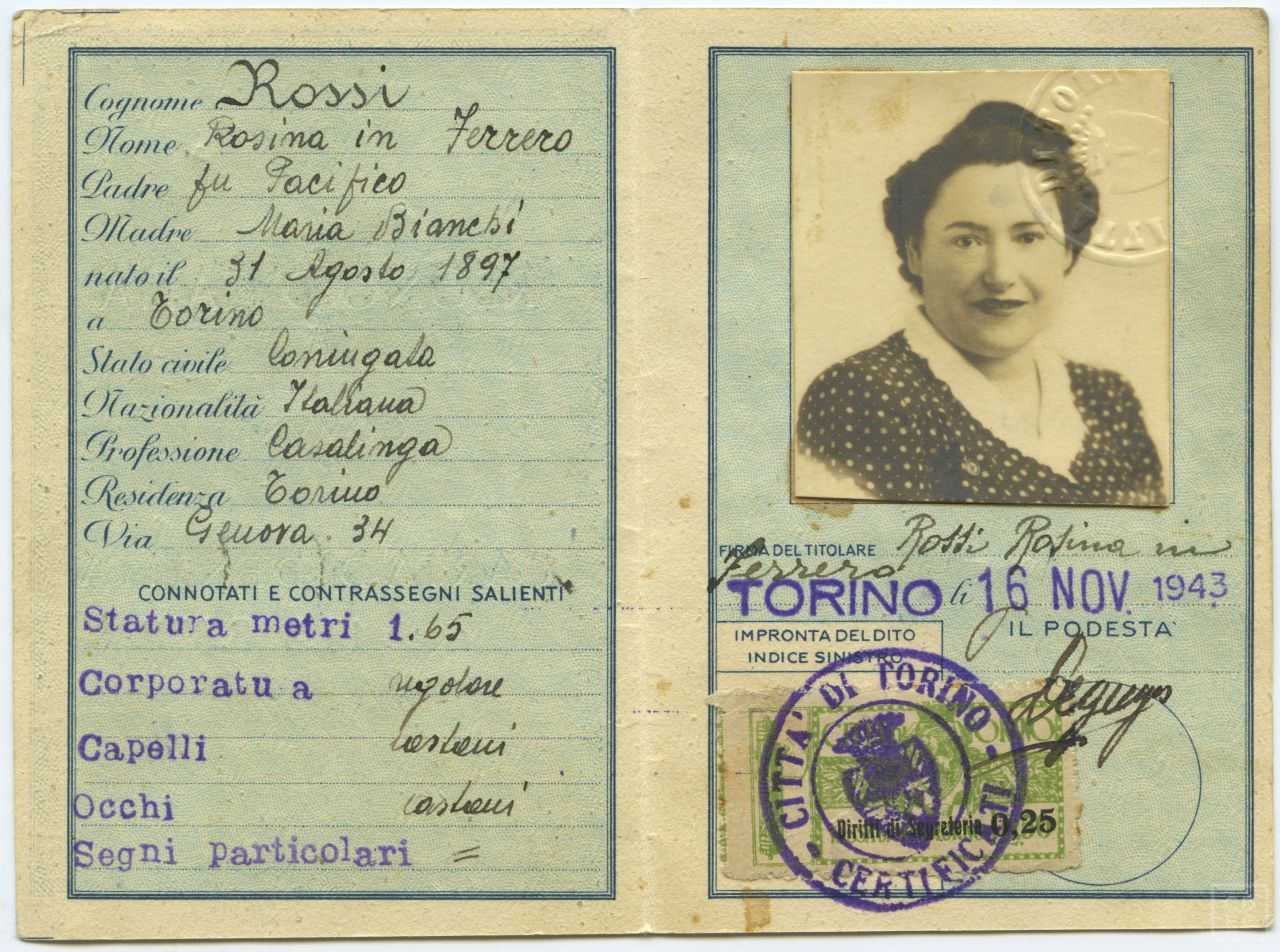 Cognome Rossi
Nome Rosina in Ferrero
Padre fu Pacifico
Madre Maria Bianchi
nato il 31 Agosto 1897
a Torino
Stato civile Coniugata
Nazionalità Italiana
Professione Casalinga
Residenza Torino
Via Genova. 34
CONNOTATI E CONTRASSEGNI SALIENTI
Statura metri 1.65
Corporatu a regolare
Capelli castani
Occhi castani
Segni particolari =
FIRMA DEL TITOLARE Rossi Rosina in
Ferrero
TORINO li 16 NOV. 1943
IL PODESTA'
IMPRONTA DEL DITO
INDICE SINISTRO
CITTA' DI TORINO
TORINO
Diritti di Segreteria 0,25
CERTIFICATI